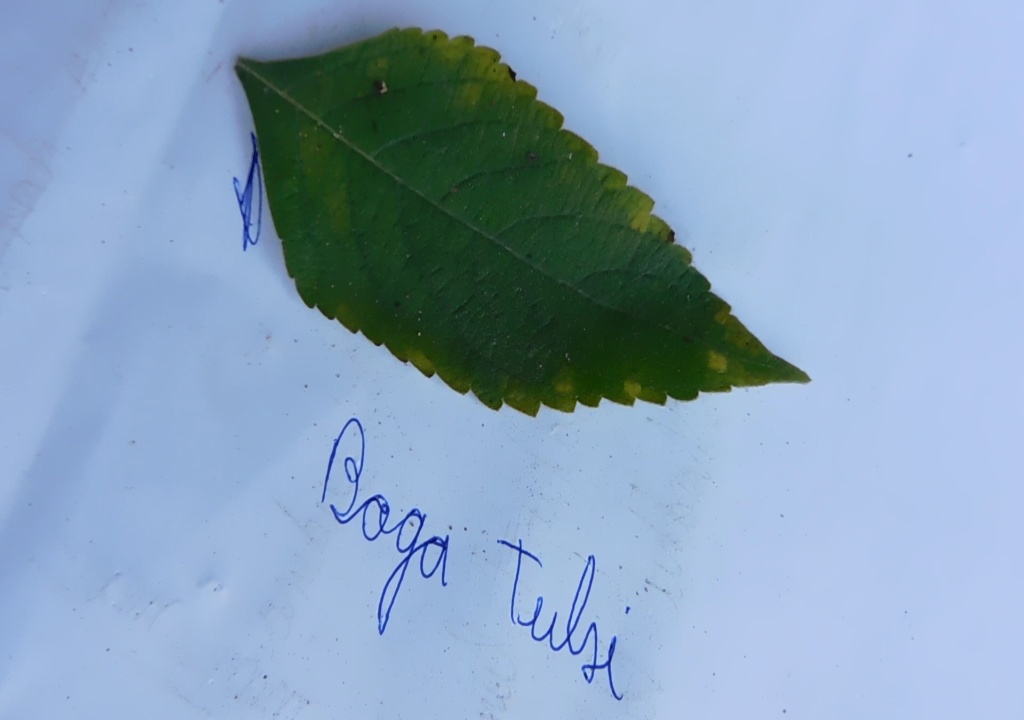 Boga Tulsi